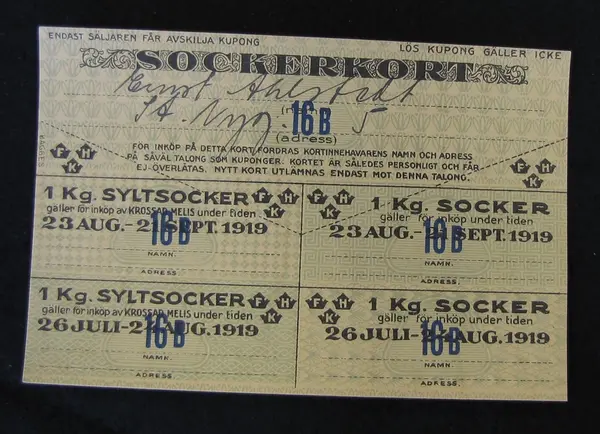 ENDAST SÄLJAREN FÅR AVSKILJA KUPONG
LÖS KUPONG GÄLLER ICKE
SOCKERKORT
Ernst Ahlstedt
(namn)
St. Nyg. 5
16B
(adress)
FÖR INKÖP PÅ DETTA KORT FORDRAS KORTINNEHAVARENS NAMN OCH ADRESS
PÅ SÅVÄL TALONG SOM KUPONGER. KORTET ÄR SÅLEDES PERSONLIGT OCH FÅR
EJ ÖVERLÅTAS. NYTT KORT UTLÄMNAS ENDAST MOT DENNA TALONG.
F H K
F H K
1 Kg. SYLTSOCKER F H K
gäller för inköp av KROSSAD MELIS under tiden
23 AUG.-21 SEPT. 1919
16B
NAMN.
ADRESS.
F H K 1 Kg. SOCKER
gäller för inköp under tiden
23 AUG.-21 SEPT. 1919
16B
NAMN.
ADRESS.
1 Kg. SYLTSOCKER F H K
gäller för inköp av KROSSAD MELIS under tiden
26 JULI-24 AUG. 1919
16B
NAMN.
ADRESS.
F H K 1 Kg. SOCKER
gäller för inköp under tiden
26 JULI-24 AUG. 1919
16B
NAMN.
ADRESS.